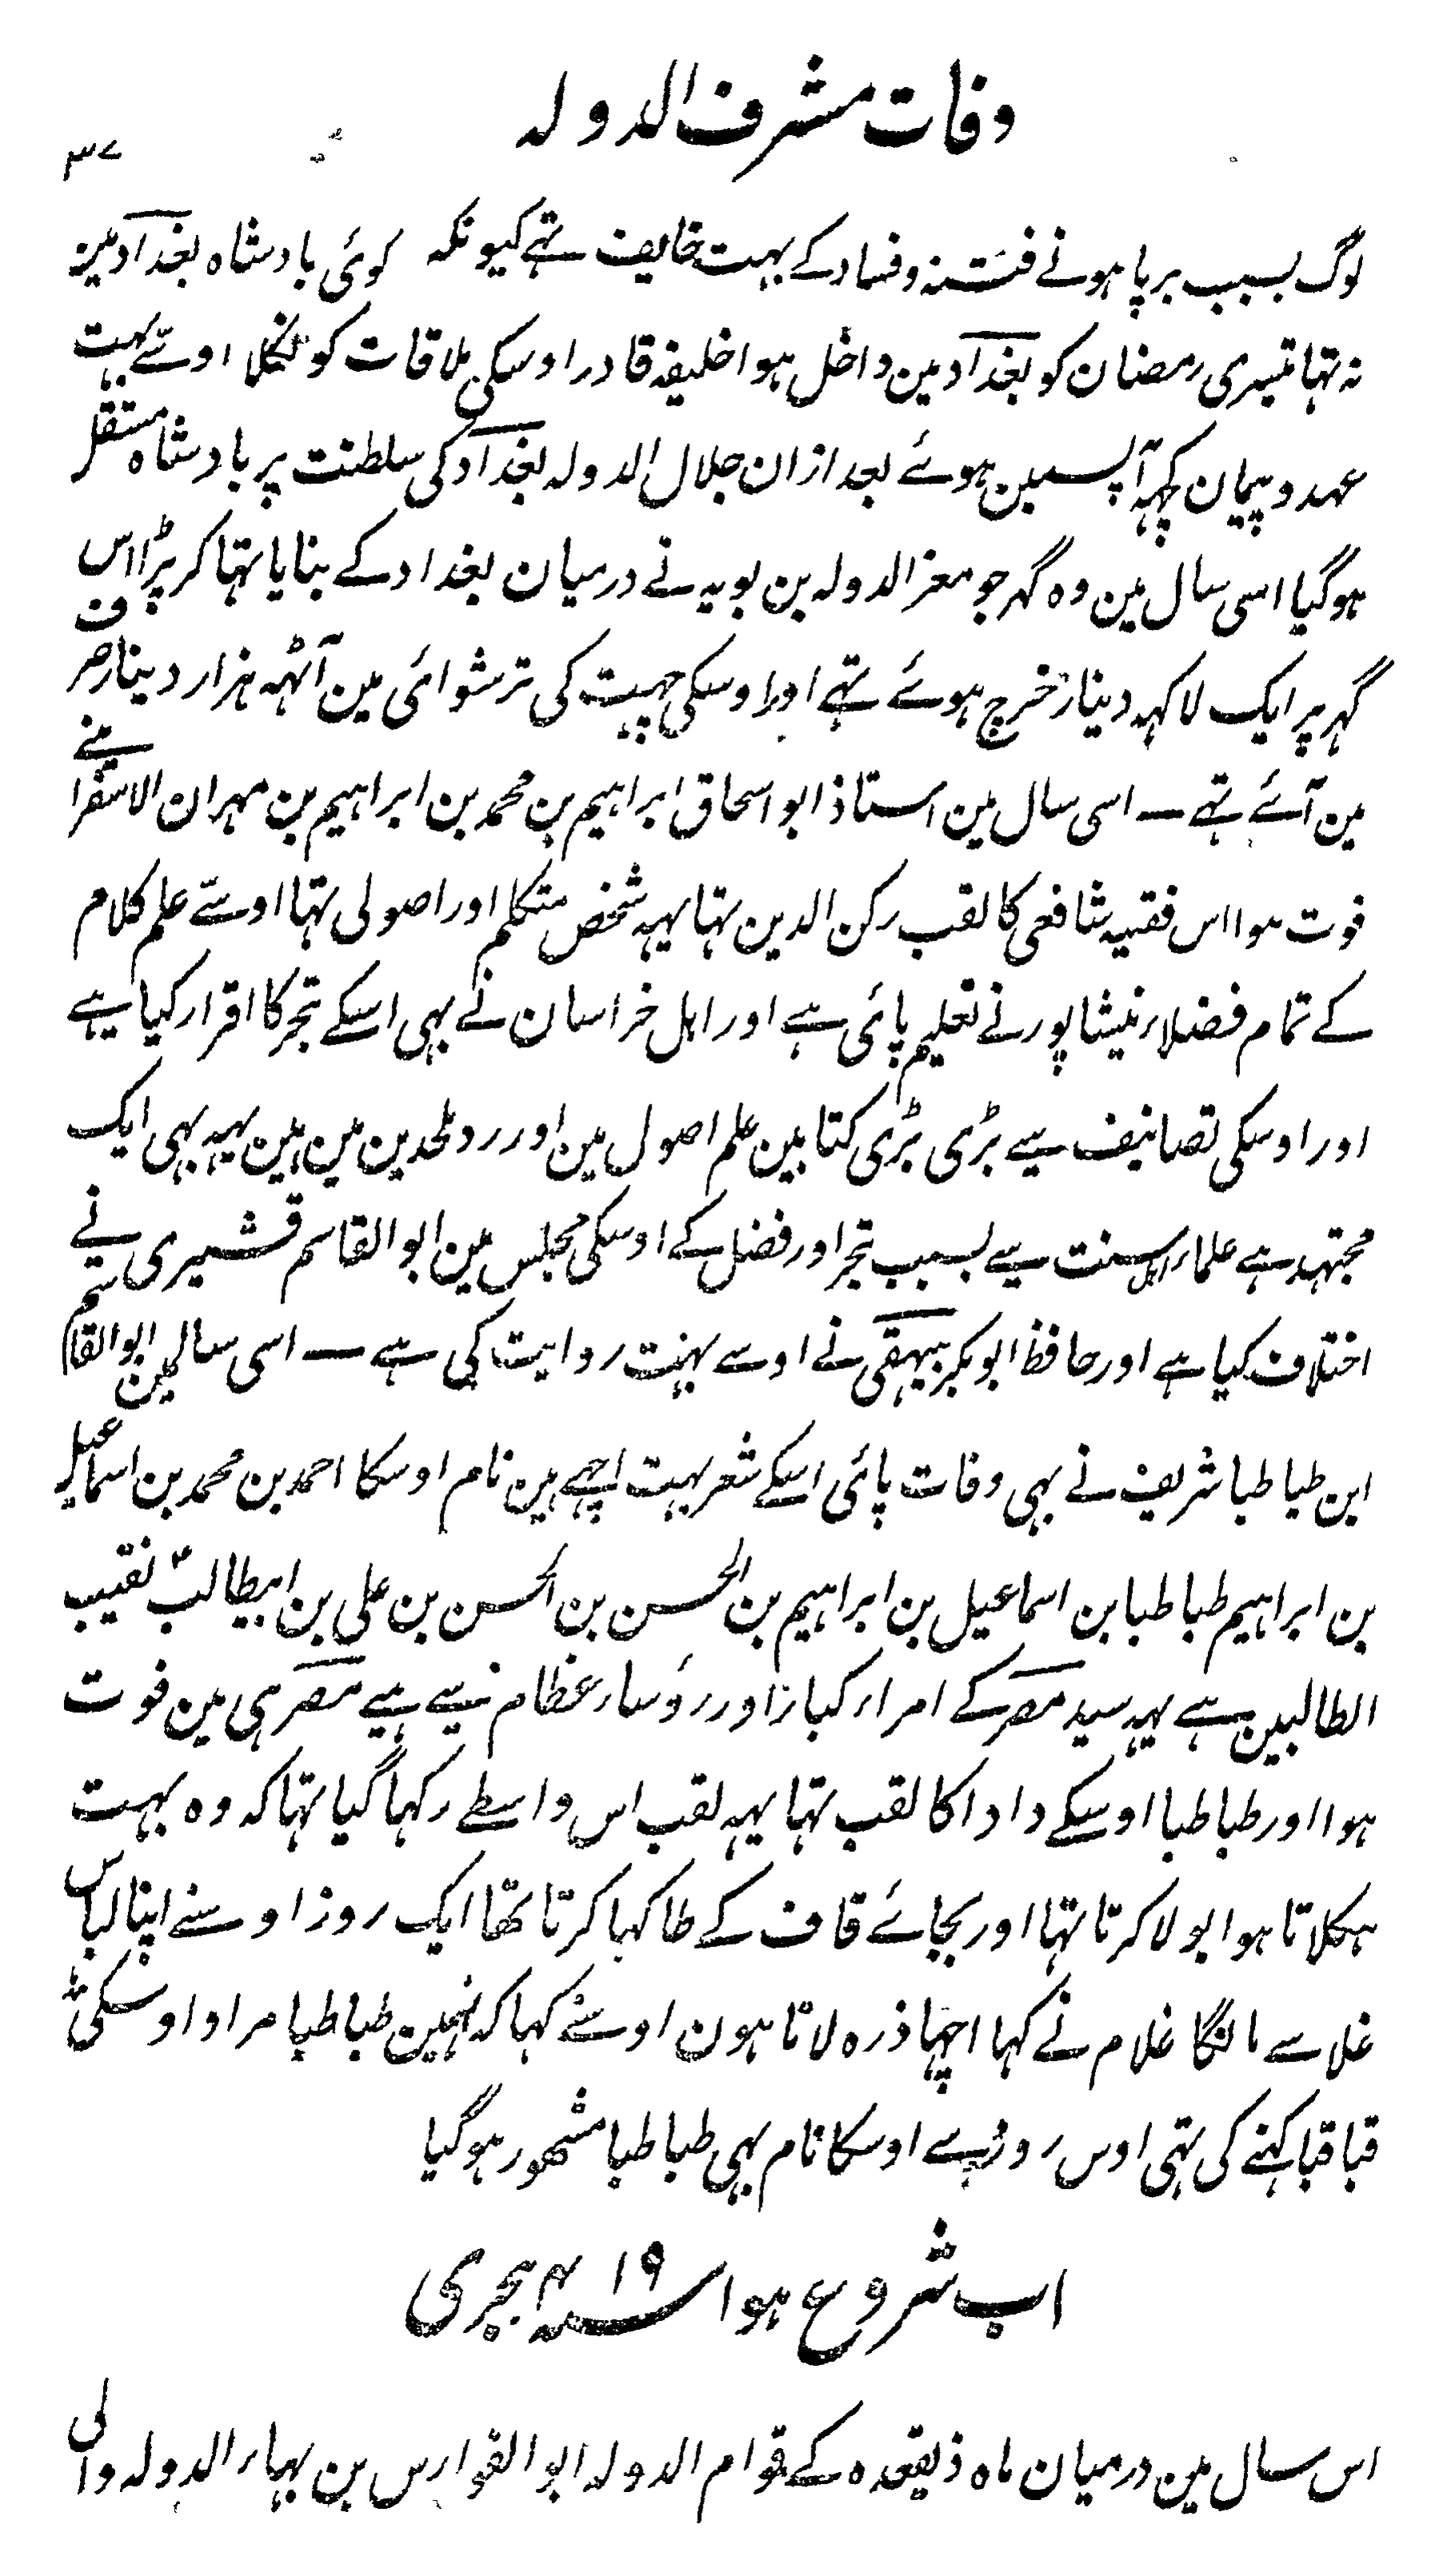 وفات مشرف الدولہ
۳۷
لوگ بسبب برپا ہونے فتنہ و فساد کے بہت خایف تہے کیونکہ کوئی بادشاہ بغداد مین
نہ تہا تیسری رمضان کو بغداد مین داخل ہوا خلیفہ قادر اوسکی ملاقات کو نکلا اوسّے بہت
عہد و پیمان کچہہ آپسمین ہوئے بعد ازان جلال الدولہ بغداد کی سلطنت پر بادشاہ مستقل
ہوگیا اسی سال مین وہ گہر جو معز الدولہ بن بویہ نے درمیان بغداد کے بنایا تہا کر پڑا اس
گہر پر ایک لاکہہ دینار خرچ ہوئے تہے اور اوسکی چہت کی ترشوائی مین آٹہہ ہزار دینار صرف
مین آئے تہے — اسی سال مین استاذ ابو اسحاق ابراہیم بن محمد بن ابراہیم بن مہران الاسفراینے
فوت ہوا اس فقیہ شافعی کا لقب رکن الدین تہا یہہ شخص متکلم اور اصولی تہا اوسّے علم کلام
کے تمام فضلاء نیشاپور نے تعلیم پائی ہے اور اہل خراسان نے بہی اسکے تبحر کا اقرار کیا ہے
اور اوسکی تصانیف سے بڑی بڑی کتابین علم اصول مین اور رد ملحدین مین ہین یہہ بہی ایک
مجتہد ہے علماء اہل سنت سے بسبب تبحر اور فضل کے اوسکی مجلس مین ابو القاسم قشیری نے
اختلاف کیا ہے اور حافظ ابو بکر بیہقی نے اوسے بہت روایت کی ہے — اسی سال مین ابو القاسم
ابن طباطبا شریف نے بہی وفات پائی اسکے شعر بہت اچہے ہین نام اوسکا احمد بن محمد بن اسماعیل
بن ابراہیم طباطبا بن اسماعیل بن ابراہیم بن الحسن بن الحسن بن علی بن ابیطالبؑ نقیب
الطالبین ہے یہہ سید مصر کے امراء کبار اور رؤساء عظام سے ہے مصر ہی مین فوت
ہوا اور طباطبا اوسکے دادا کا لقب تہا یہہ لقب اس واسطے رکہا گیا تہا کہ وہ بہت
ہکلاتا ہوا بولا کرتا تہا اور بجائے قاف کے طا کہا کرتا تھا ایک روز اوسنے اپنا لباس
غلا سے مانگا غلام نے کہا اچہا ذرہ لاتا ہون اوسنے کہا کہ نہین طباطبا مراد اوسکی
قبا قبا کہنے کی تہی اوس روز سے اوسکا نام بہی طباطبا مشہور ہوگیا
اب شروع ہوا سنہ ۴۱۹ ہجری
اس سال مین درمیان ماہ ذیقعدہ کے قوام الدولہ ابو الفوارس بن بہاء الدولہ والی